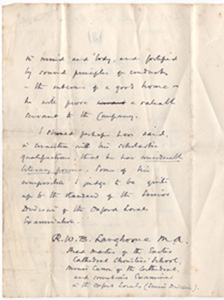 in mind and body, and fortified
by sound principles of conduct –
the outcome of a good home –
he will prove a valuable
servant to the Company.
I should perhaps have said,
in connection with his scholastic
qualifications, that he has
literary powers. Some of his
composition I judge to be quite
up to the standard of the Senior
Division of the Oxford Local
Examination.
R. W. B. Langhorne M.A.
Head Master of the
Cathedral Choristers' School,
Minor Canon of the Cathedral,
and Examiner
in the Oxford Locals (Senior Division).